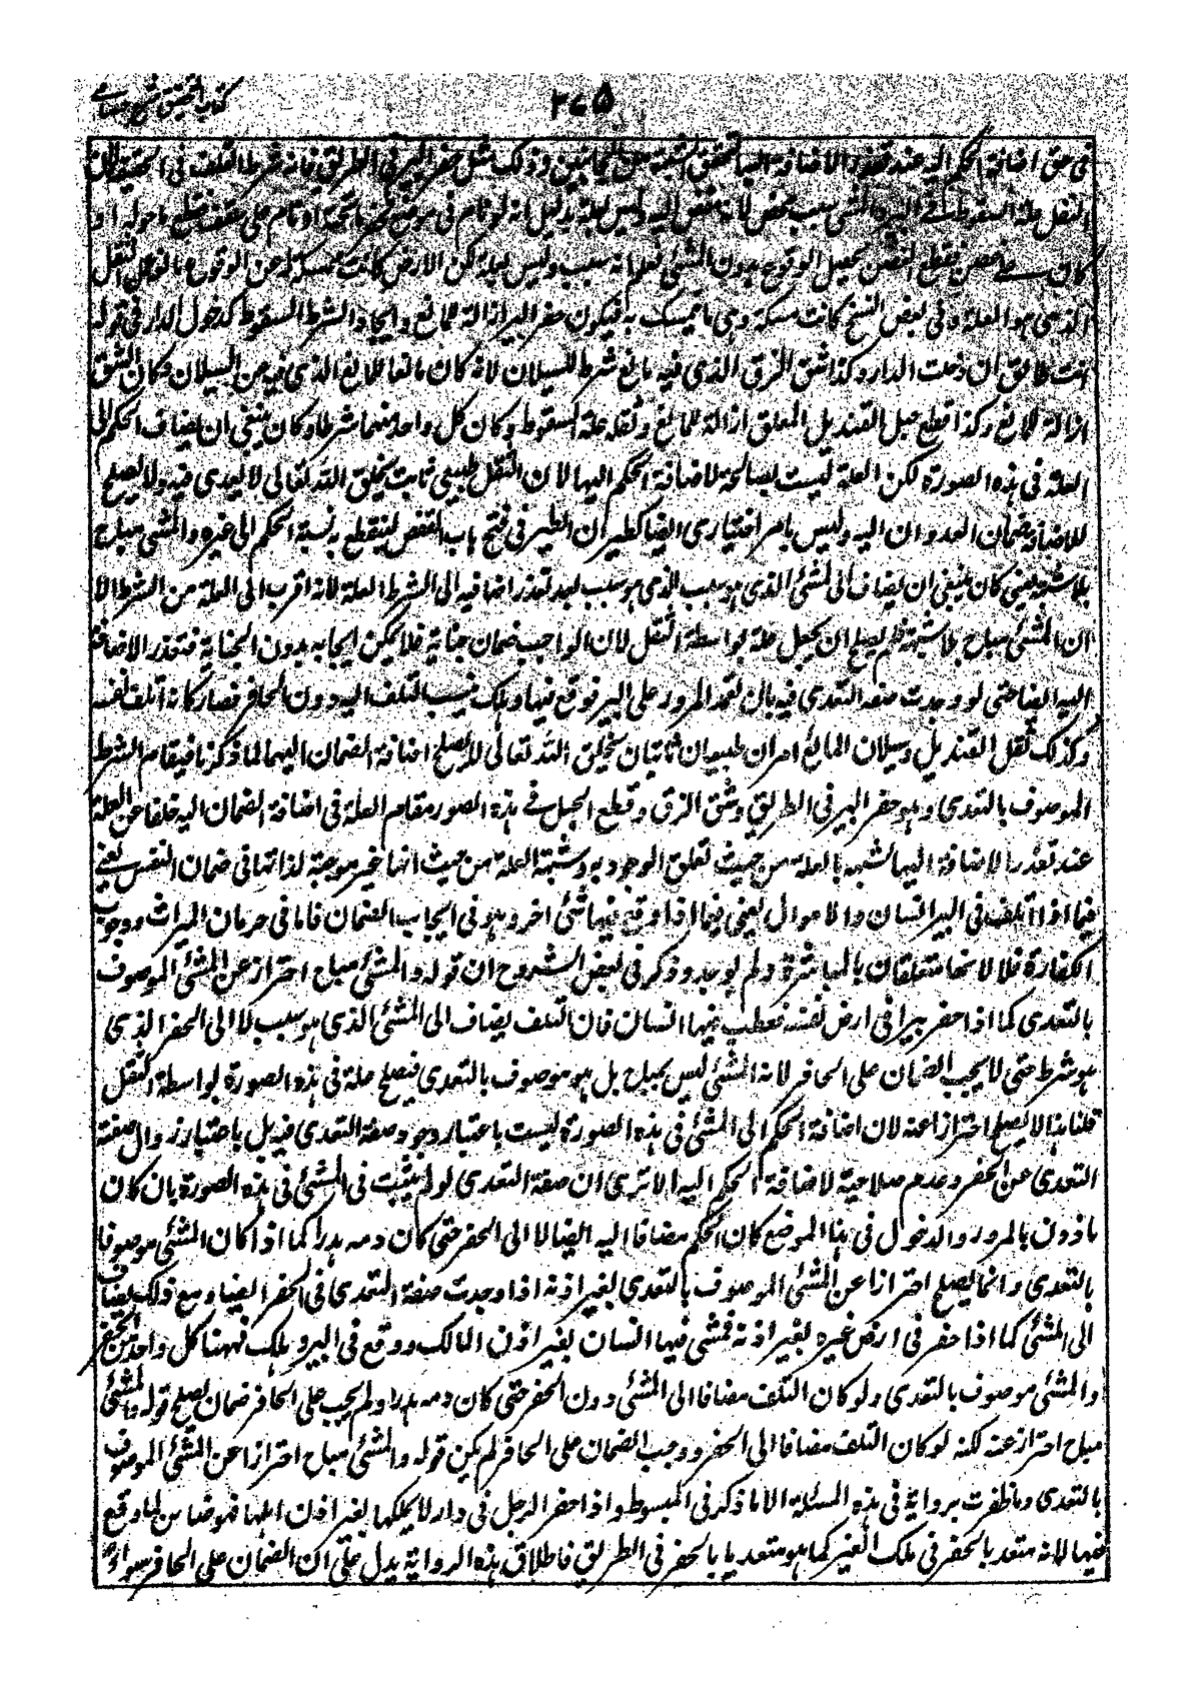 كتاب التحقيق شرح حسامي
٢٦٥
فى حق اضافة الحكم اليه عند تعذر الاضافة اليها لتحقق الشبه من الجانبين وذلك مثل حفر البير فى الطريق فانه شرط التلف فى الحقيقة لان
الثقل علة السقوط فى البير والمشى سبب محض لانه مفض اليه وليس بعلة بدليل انه لو نام فى موضع فحفر ما تحته او نام على سقف فقطع ما حوله او
كان على غصن فقطع الغصن يحصل الوقوع بدون المشى فعلم انه سبب وليس بعلة لكن الارض كانت مسكة عن الوقوع مانعة عمل الثقل
الذى هو العلة وفى بعض النسخ كانت مسكة وهى ما يمسك به فيكون حفر البير ازالة للمانع وايجاد الشرط السقوط كدخول الدار فى قوله
انت طالق ان دخلت الدار وكذا شق الزق الذى فيه مائع شرط للسيلان لانه كان مانعا للمائع الذى فيه عن السيلان وكان الشق
ازالة للمانع وكذا قطع حبل القنديل المعلق ازالة للمانع وثقله علة السقوط وكان كل واحد منهما شرطا وكان ينبغى ان يضاف الحكم الى
العلة فى هذه الصورة لكن العلة ليست بصالحة لاضافة الحكم اليها لان الثقل طبيعى ثابت بخلق الله تعالى لا تعدى فيه ولا يصلح
للاضافة ضمان العدوان اليه وليس بامر اختيارى ايضا كطيران الطير فى فتح باب القفص لينقطع به نسبة الحكم الى غيره والمشى مباح
بلا شبهة يعنى كان ينبغى ان يضاف الى المشى الذى هو سبب بعد تعذر اضافته الى العلة لانه اقرب الى العلة من الشرط الا
ان المشى مباح بلا شبهة فلم يصلح ان يجعل علة بواسطة الثقل لان الواجب ضمان جناية فلا يمكن ايجابه بدون الجناية فتعذر الاضافة
اليه ايضا حتى لو وجدت صفة التعدى فيه بان تعمد المرور على البير فوقع فيها وهلك ينسب التلف اليه دون الحافر فصار كانه اتلف نفسه
وكذلك ثقل القنديل وسيلان المائع امران طبيعيان ثابتان بخلق الله تعالى لا يصلح اضافة الضمان اليهما لما ذكرنا فيقام الشرط
الموصوف بالتعدى وهو حفر البير فى الطريق وشق الزق وقطع الحبل فى هذه الصور مقام العلة فى اضافة الضمان اليه خلفا عن العلة
عند تعذر الاضافة اليها لشبهه بالعلة من حيث تعلق الوجود به وشبهة العلة من حيث انها غير موجبة لذاتها فى ضمان النفس يعنى
فيما اذا اتلف فى البير انسان والاموال يعنى فيما اذا وقع فيها شئ اخر وهو فى ايجاب الضمان فاما فى حرمان الميراث ووجوب
الكفارة فلا لانهما متعلقان بالمباشرة ولم يوجد وذكر فى بعض الشروح ان قوله والمشى مباح احتراز عن المشى الموصوف
بالتعدى كما اذا حفر بيرا فى ارض نفسه فعطب فيها انسان فان التلف يضاف الى المشى الذى هو سبب لا الى الحفر الذى
هو شرط حتى لا يجب الضمان على الحافر لانه المشى ليس بمباح بل هو موصوف بالتعدى فيصلح علة فى هذه الصورة بواسطة الثقل
قلنا هذا لا يصلح احترازا عنه لان اضافة الحكم الى المشى فى هذه الصورة ليست باعتبار وجود صفة التعدى فيه بل باعتبار زوال صفة
التعدى عن الحفر وعدم صلاحية لاضافة الحكم اليه الا ترى ان صفة التعدى لو لم يثبت فى المشى فى هذه الصورة بان كان
ماذون بالمرور والدخول فى هذا الموضع كان الحكم مضافا اليه ايضا لا الى الحفر حتى كان دمه هدرا كما اذا كان المشى موصوفا
بالتعدى وانما يصلح احترازا عن المشى الموصوف بالتعدى بغير اذنه اذا وجدت صفة التعدى فى الحفر ايضا ومع ذلك يضاف
الى المشى كما اذا حفر فى ارض غيره بغير اذنه فمشى فيها انسان بغير اذن المالك ووقع فى البير وهلك فههنا كل واحد من الحفر
والمشى موصوف بالتعدى ولو كان التلف مضافا الى المشى دون الحفر حتى كان دمه هدرا ولم يجب على الحافر ضمان يصلح قوله والمشى
مباح احتراز عنه لكنه لو كان التلف مضافا الى الحفر ووجب الضمان على الحافر لم يكن قوله والمشى مباح احترازا عن المشى الموصوف
بالتعدى وما ظفرت برواية فى هذه المسئلة الا ما ذكر فى المبسوط واذا حفر الرجل فى دار لا يملكها بغير اذن اهلها فهو ضامن لما وقع
فيها لانه متعد بالحفر فى ملك الغير كما هو متعد يا بالحفر فى الطريق فاطلاق هذه الرواية يدل على ان الضمان على الحافر سواء